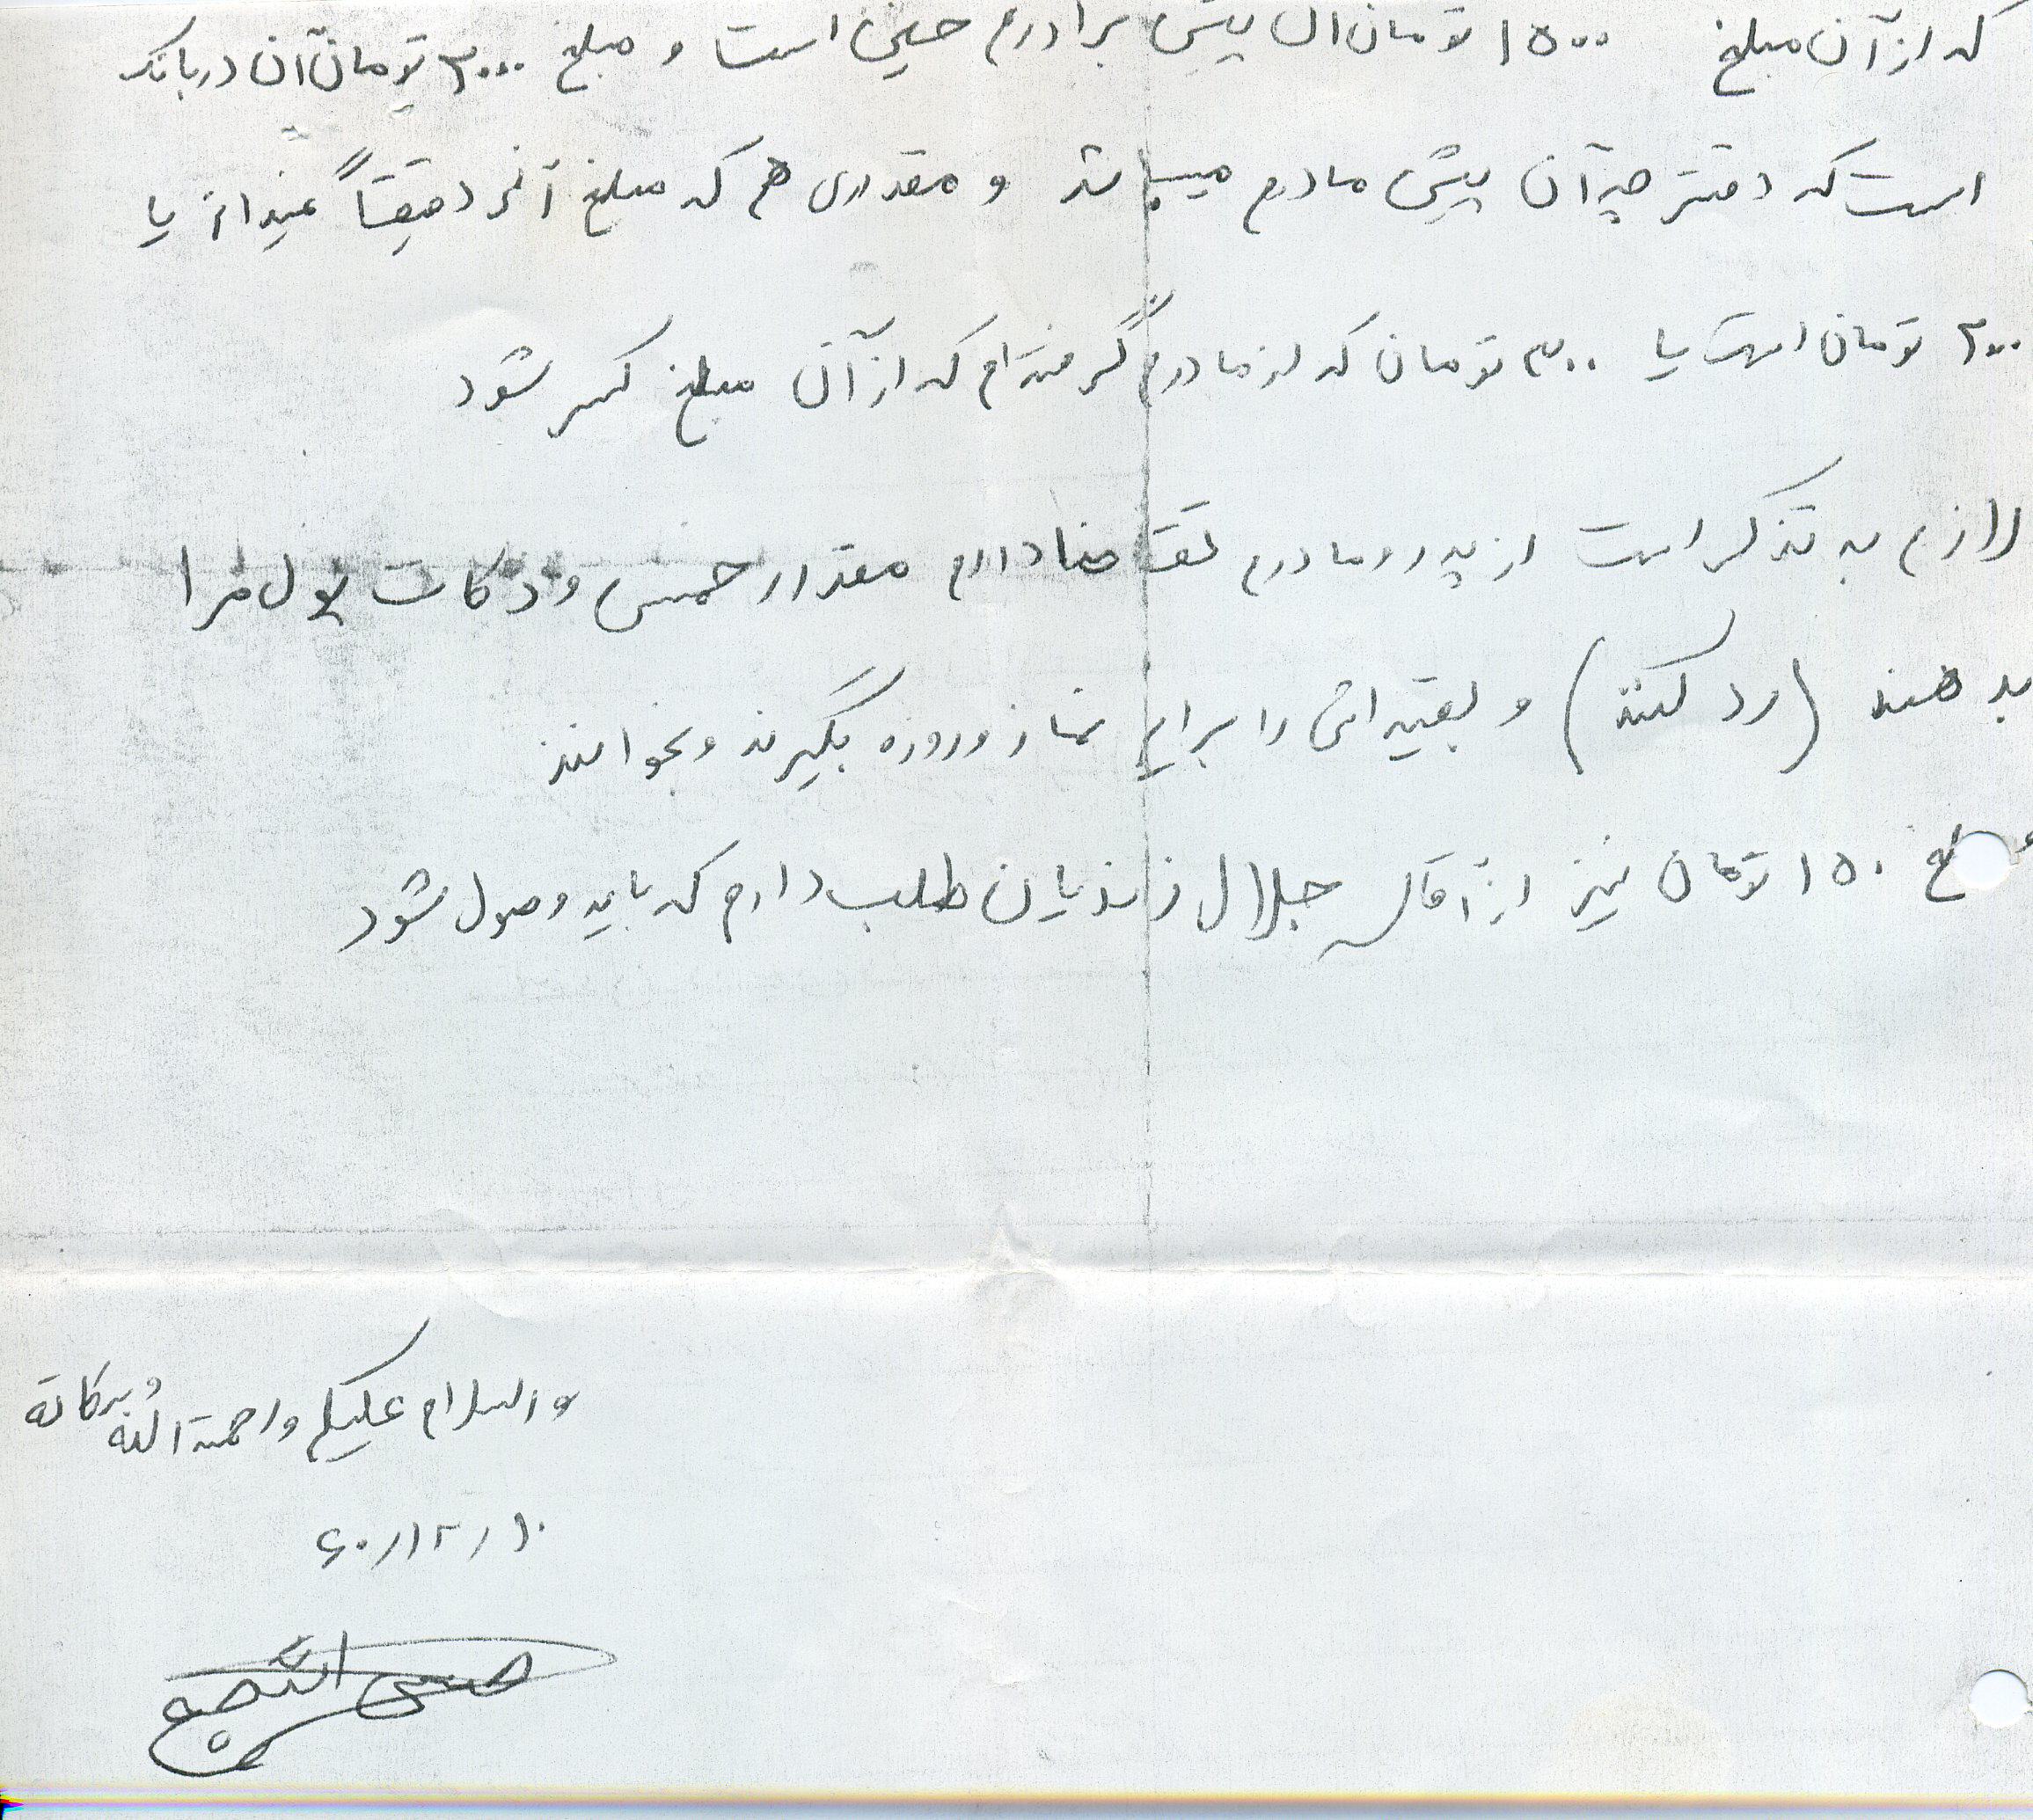 که از آن مبلغ ۱۵۰۰ تومان ال پیش برادرم حسین است و مبلغ ۳۰۰۰ تومان آن در بانک
است که دفترچه آن پیش مادرم میباشد و مقداری هم که مبلغ آنر دقیقتاً نمیدانم یا
۲۰۰ تومان است یا ۳۰۰ تومان که از مادرم گرفته ام که از آن مبلغ کسر شود
لازم به تذکر است از پدر و مادرم تقاضا دارم مقدار خمس و ذکات پول مرا
بدهند (رد کنند) و بقیه اش را برایم نماز و روزه بگیرند و بخوانند
۱۵۰ تومان نیز از آقای جلال زندیان طلب دارم که باید وصول شود
والسلام علیکم و رحمته الله وبرکاته
۶۰/۱۲/۱۰